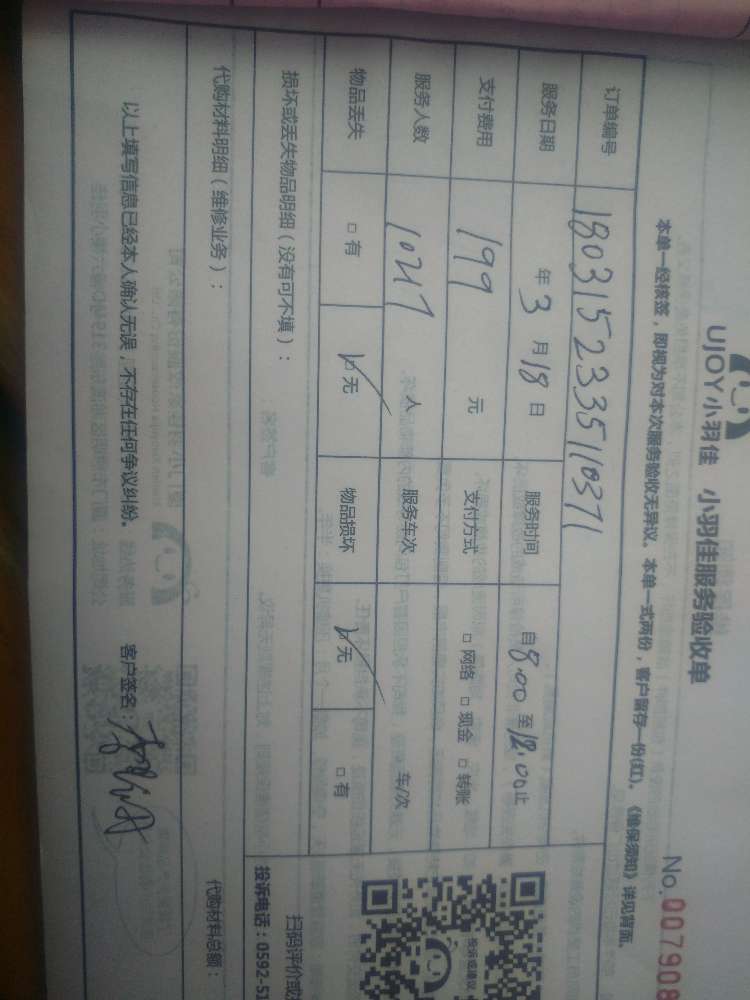 UJOY小羽佳 小羽佳服务验收单
No.007908
本单一经核签，即视为对本次服务验收无异议。本单一式两份，客户留存一份(红)。《维保须知》详见背面。
订单编号 180315233511037 1
服务日期 年 3 月 18 日 服务时间 自 8:00 至 12:00 止
支付费用 199 元 支付方式 □ 网络 □ 现金 □ 转账
服务人数 10217 人 服务车次 车/次
物品丢失 □ 有 ☑ 无 物品损坏 ☑ 无 □ 有
损坏或丢失物品明细（没有可不填）：
代购材料明细（维修业务）： 代购材料总额：
以上填写信息已经本人确认无误，不存在任何争议纠纷。 客户签名：
投诉或建议
扫码评价或
投诉电话：0592-51